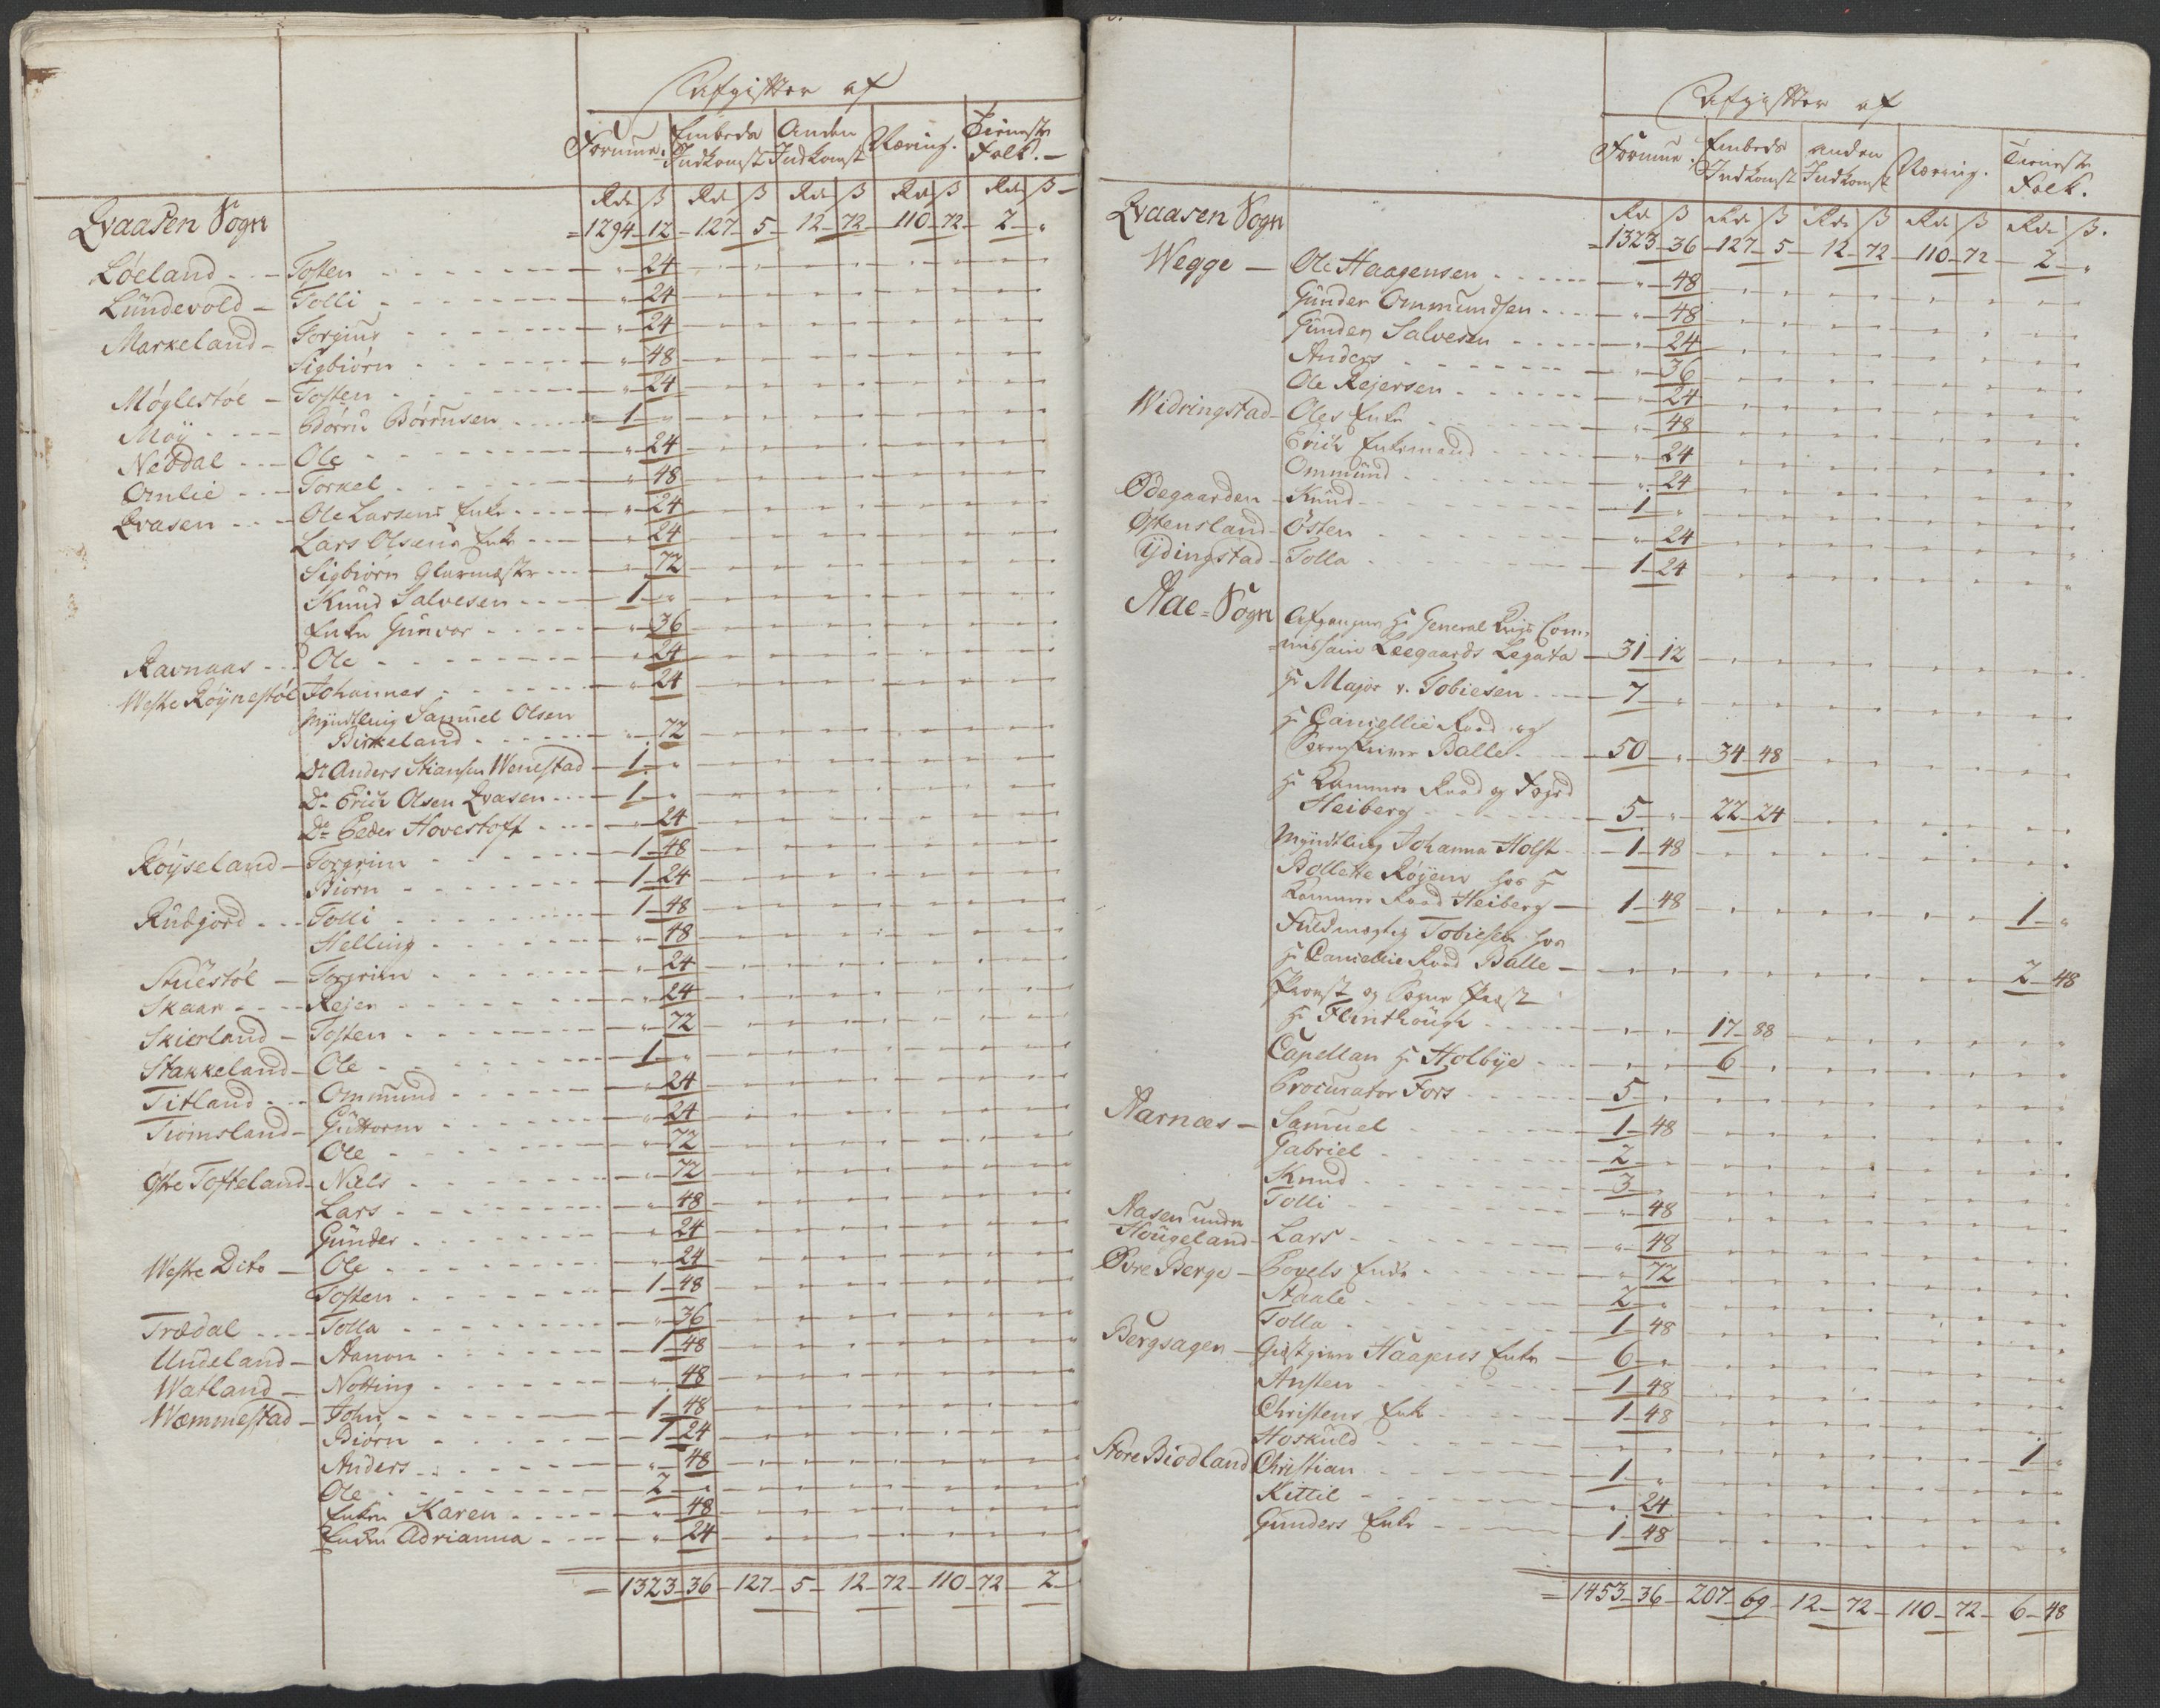 Afgifter af
Formue. Embeds Indkomst Anden Indkomst Næring. Tieneste Folk.
Rd ß Rd ß Rd ß Rd ß Rd ß
Qvaasen Sogn = 1294 - 12 - 127 - 5 - 12 - 72 - 110 - 72 - 2 - "
Løeland - Tosten - " - 24
Lundevold - Tolli - " - 24
Markeland - Torgius - " - 24
Sigbiørn - " - 48
Møglestøl - Tosten - " - 24
Moÿ - Børru Børrusen - 1 - "
Neddal - Ole - " - 24
Omlie - Torkel - " - 48
Qvasen - Ole Larsens Enke - " - 24
Lars Olsens Enke - " - 24
Sigbiørn Glarmæster - " - 72
Knud Salvesen - 1 - "
Enken Gunvor - " - 36
Ravnaas - Ole - " - 24
Westre Røÿnestøl Johannes - " - 24
Myndtling Samuel Olsen
Birkeland - " - 72
Do Anders Stiansen Wemestad - 1 - "
Do Erich Olsen Qvasen - 1 - "
Do Peder Hovestoft - " - 24
Røÿseland - Torgrim - 1 - 48
Biørn - 1 - 24
Rudgjord - Tolli - 1 - 48
Helling - " - 48
Stuestøl - Torgrim - " - 24
Skaar - Rejer - " - 24
Skierland - Tosten - " - 72
Stakkeland - Ole - 1 - "
Titland - Ommund - " - 24
Tiomsland - Guttorm - " - 24
Ole - " - 72
Østre Tofteland - Niels - " - 72
Lars - " - 48
Gunder - " - 24
Westre Dito - Ole - " - 24
Tosten - 1 - 48
Trædal - Tolla - " - 36
Undeland - Aanon - 1 - 48
Watland - Notting - " - 48
Wæmmestad - John - 1 - 48
Biørn - 1 - 24
Anders - " - 48
Ole - 2 - "
Enken Karen - " - 48
Enken Adrianna - " - 24
= 1323 - 36 - 127 - 5 - 12 - 72 - 110 - 72 - 2 -
Afgifter af
Formue. Embeds Indkomst anden Indkomst Næring. Tieneste Folk.
Rd ß Rd ß Rd ß Rd ß Rd ß.
Qvaasen Sogn = 1323 - 36 - 127 - 5 - 12 - 72 - 110 - 72 - 2 - "
Wegge - Ole Haagensen - " - 48
Gunder Ommundsen - " - 48
Gunder Salvesen - " - 24
Anders - " - 36
Ole Rejersen - " - 24
Widringstad - Oles Enke - " - 48
Erich Enkemand - " - 24
Ommund - " - 24
Ødegaarden - Knud - 1 - "
Østensland - Østen - " - 24
Ÿdingstad - Tolla - 1 - 24
Aae-Sogn Afgangne Hr General Krigs Com-
missair Leegaards Legata - 31 - 12
Hr Major v. Tobiesen - 7 - "
Hr Cancellie Raad og
Sorenskriver Balle - 50 - " - 34 - 48
Hr Kammer Raad og Foged
Heiberg - 5 - " - 22 - 24
Myndtling Johanna Holst - 1 - 48
Bollette Røÿem hos Hr
Kammer Raad Heiberg - 1 - 48 - 1 - "
Fuldmægtig Tobiesen hos
Hr Cancellie Raad Balle - 2 - 48
Provst og Sogne Præst
Hr Flinthough - 17 - 88
Capellan Hr Holbÿe - 6 -
Procurator Fors - 5 - "
Aarnæs - Samuel - 1 - 48
Gabriel - 2 - "
Knud - 3 - "
Tolli - " - 48
Aasen under
Hougeland - Lars - " - 48
Øvre Berge - Povels Enke - " - 72
Staale - 2 - "
Tolla - 1 - 48
Bergsagen - Giestgiver Haagens Enke - 6 - "
Austen - 1 - 48
Christens Enke - 1 - 48
Hoskuld - 1 - "
Store Biodland Christian - 1 - "
Kittil - " - 24
Gunders Enke - 1 - 48
= 1453 - 36 - 207 - 69 - 12 - 72 - 110 - 72 - 6 - 48